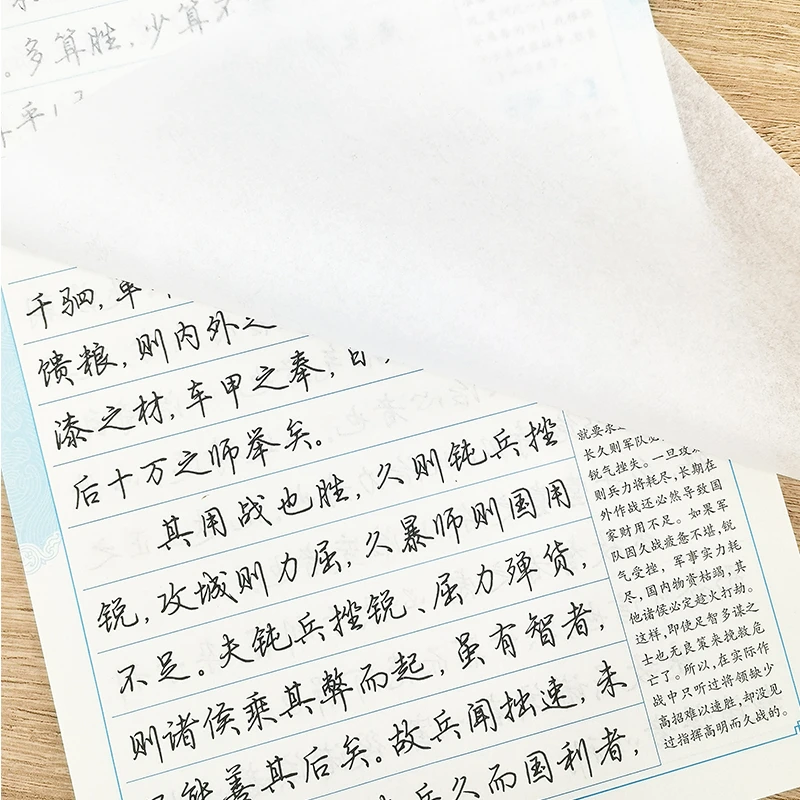 。多算胜，少算
千驷，革
馈粮，则内外之
漆之材，车甲之奉，日
后十万之师举矣。
其用战也胜，久则钝兵挫
锐，攻城则力屈，久暴师则国用
不足。夫钝兵挫锐、屈力殚货，
则诸侯乘其弊而起，虽有智者，
不能善其后矣。故兵闻拙速，未
兵久而国利者，
就要求
长久则军队必
锐气挫失。一旦攻
则兵力将耗尽，长期在
外作战还必然导致国
家财用不足。如果军
队因久战疲备不堪，锐
气受挫，军事实力耗
尽，国内物资枯竭，其
他诸侯必定趁火打劫。
这样，即使足智多谋之
士也无良策来挽救危
亡了。所以，在实际作
战中只听过将领缺少
高招难以速胜，却没见
过指挥高明而久战的。